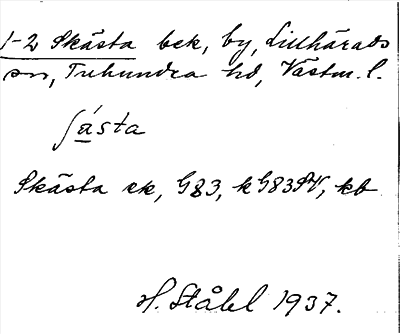 1-2 Skästa bek, by, Lillhärads
sn, Tuhundra hd, Västm. l.
ʃä́sta
Skästa ek, G83, k G83 SV, kb
H. Ståhl 1937.